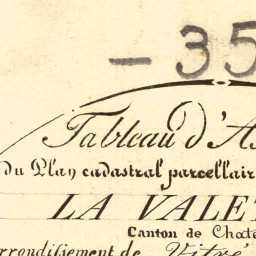 - 35
Tableau d'As
du Plan cadastral parcellair
LA VALET
Canton de Chate
rrondissement de Vitré